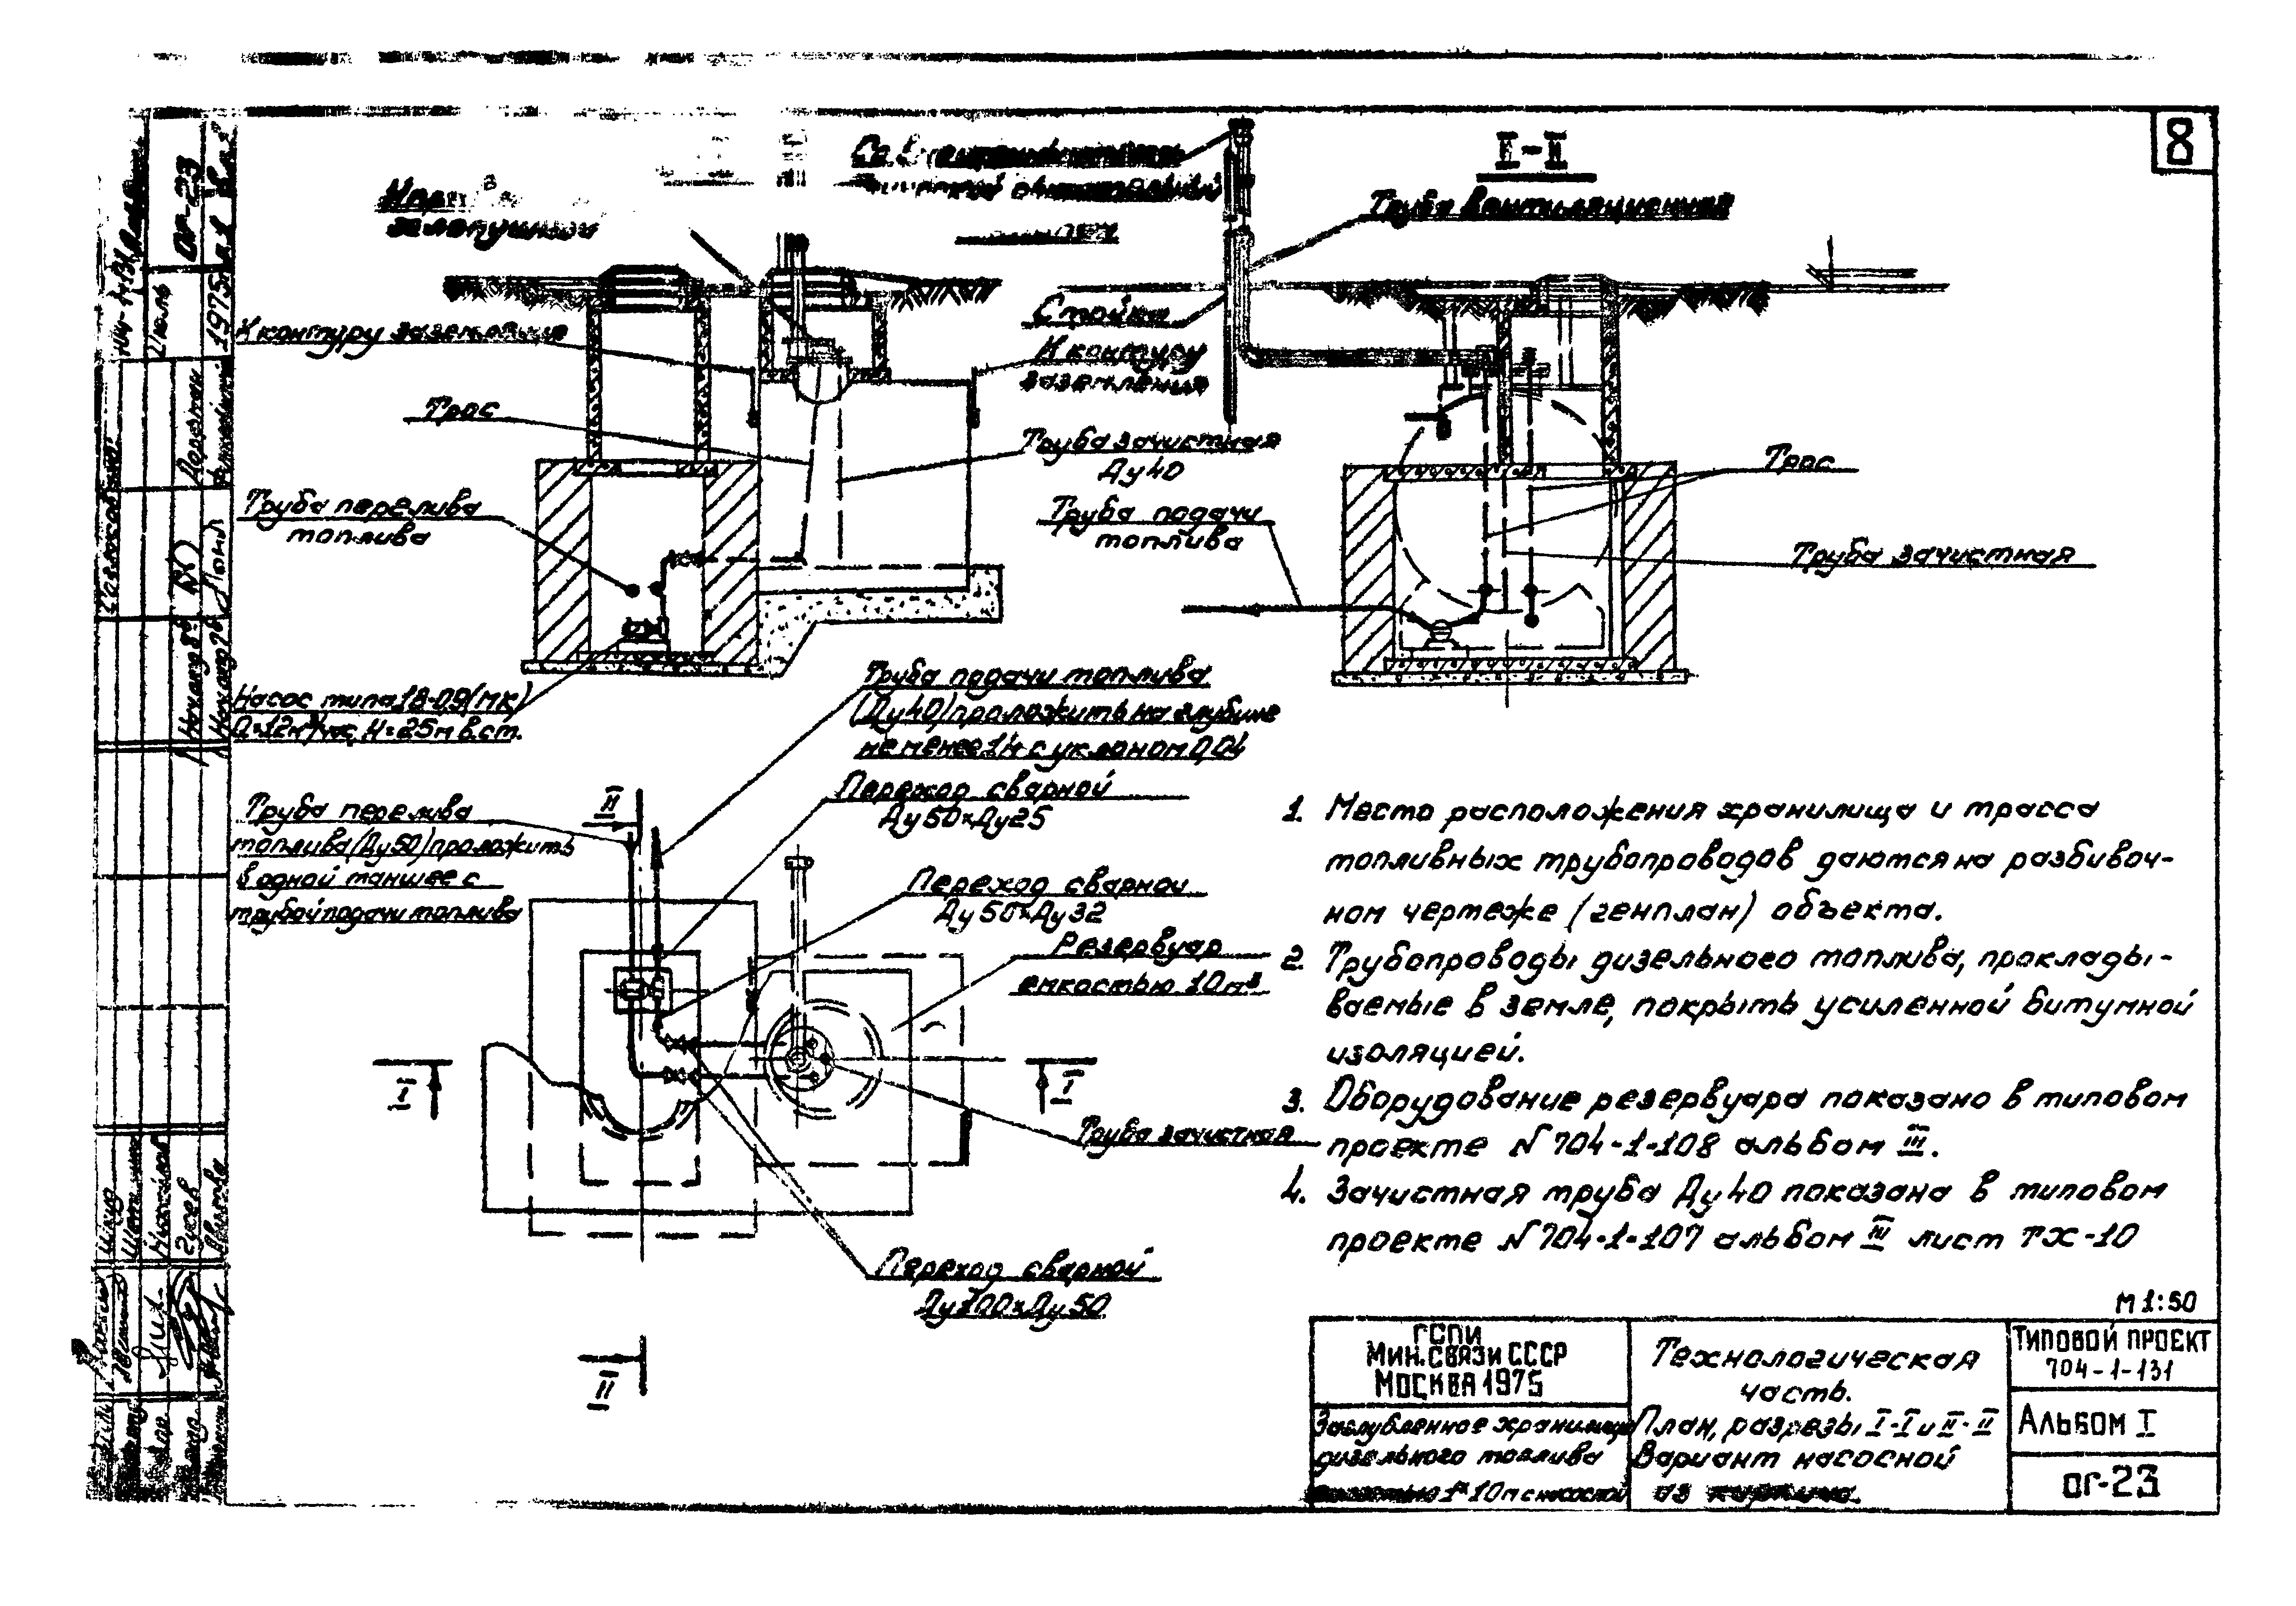 8
I-I
Труба вентиляционная
К контуру заземления
Стойка
К контуру
заземления
Трос
Труба зачистная
Ду 40
Трос
Труба перелива
топлива
Труба подачи
топлива
Труба зачистная
Насос типа 1В-0,9 (МК)
H=25м в.ст.
Труба подачи топлива
(Ду 40) проложить на глубине
не менее 1м с уклоном 0,04
Переход сварной
Ду 50×Ду 25
Труба перелива
топлива (Ду 50) проложить
в одной таншее с
трубой подачи топлива
II
Переход сварной
Ду 50×Ду 32
Резервуар
емкостью 10м³
I
I
Труба зачистная
Переход сварной
Ду 100×Ду 50
II
1. Место расположения хранилища и трасса
топливных трубопроводов даются на разбивоч-
ном чертеже (генплан) объекта.
2. Трубопроводы дизельного топлива, проклады-
ваемые в земле, покрыть усиленной битумной
изоляцией.
3. Оборудование резервуара показано в типовом
проекте N 704-1-108 альбом III.
4. Зачистная труба Ду 40 показана в типовом
проекте N 704-1-107 альбом III лист ТХ-10
М 1:50
ГСПИ
Мин. связи СССР
Москва 1975
Заглубленное хранилище
дизельного топлива
емкостью 1×10м с насосной
Технологическая
часть.
План, разрезы I-I и II-II
Вариант насосной
из кирпича.
Типовой проект
704-1-131
Альбом I
ОГ-23
ОГ-23
Июль
1975
Согласовано:
Дорфман
Шкуд
Гусев